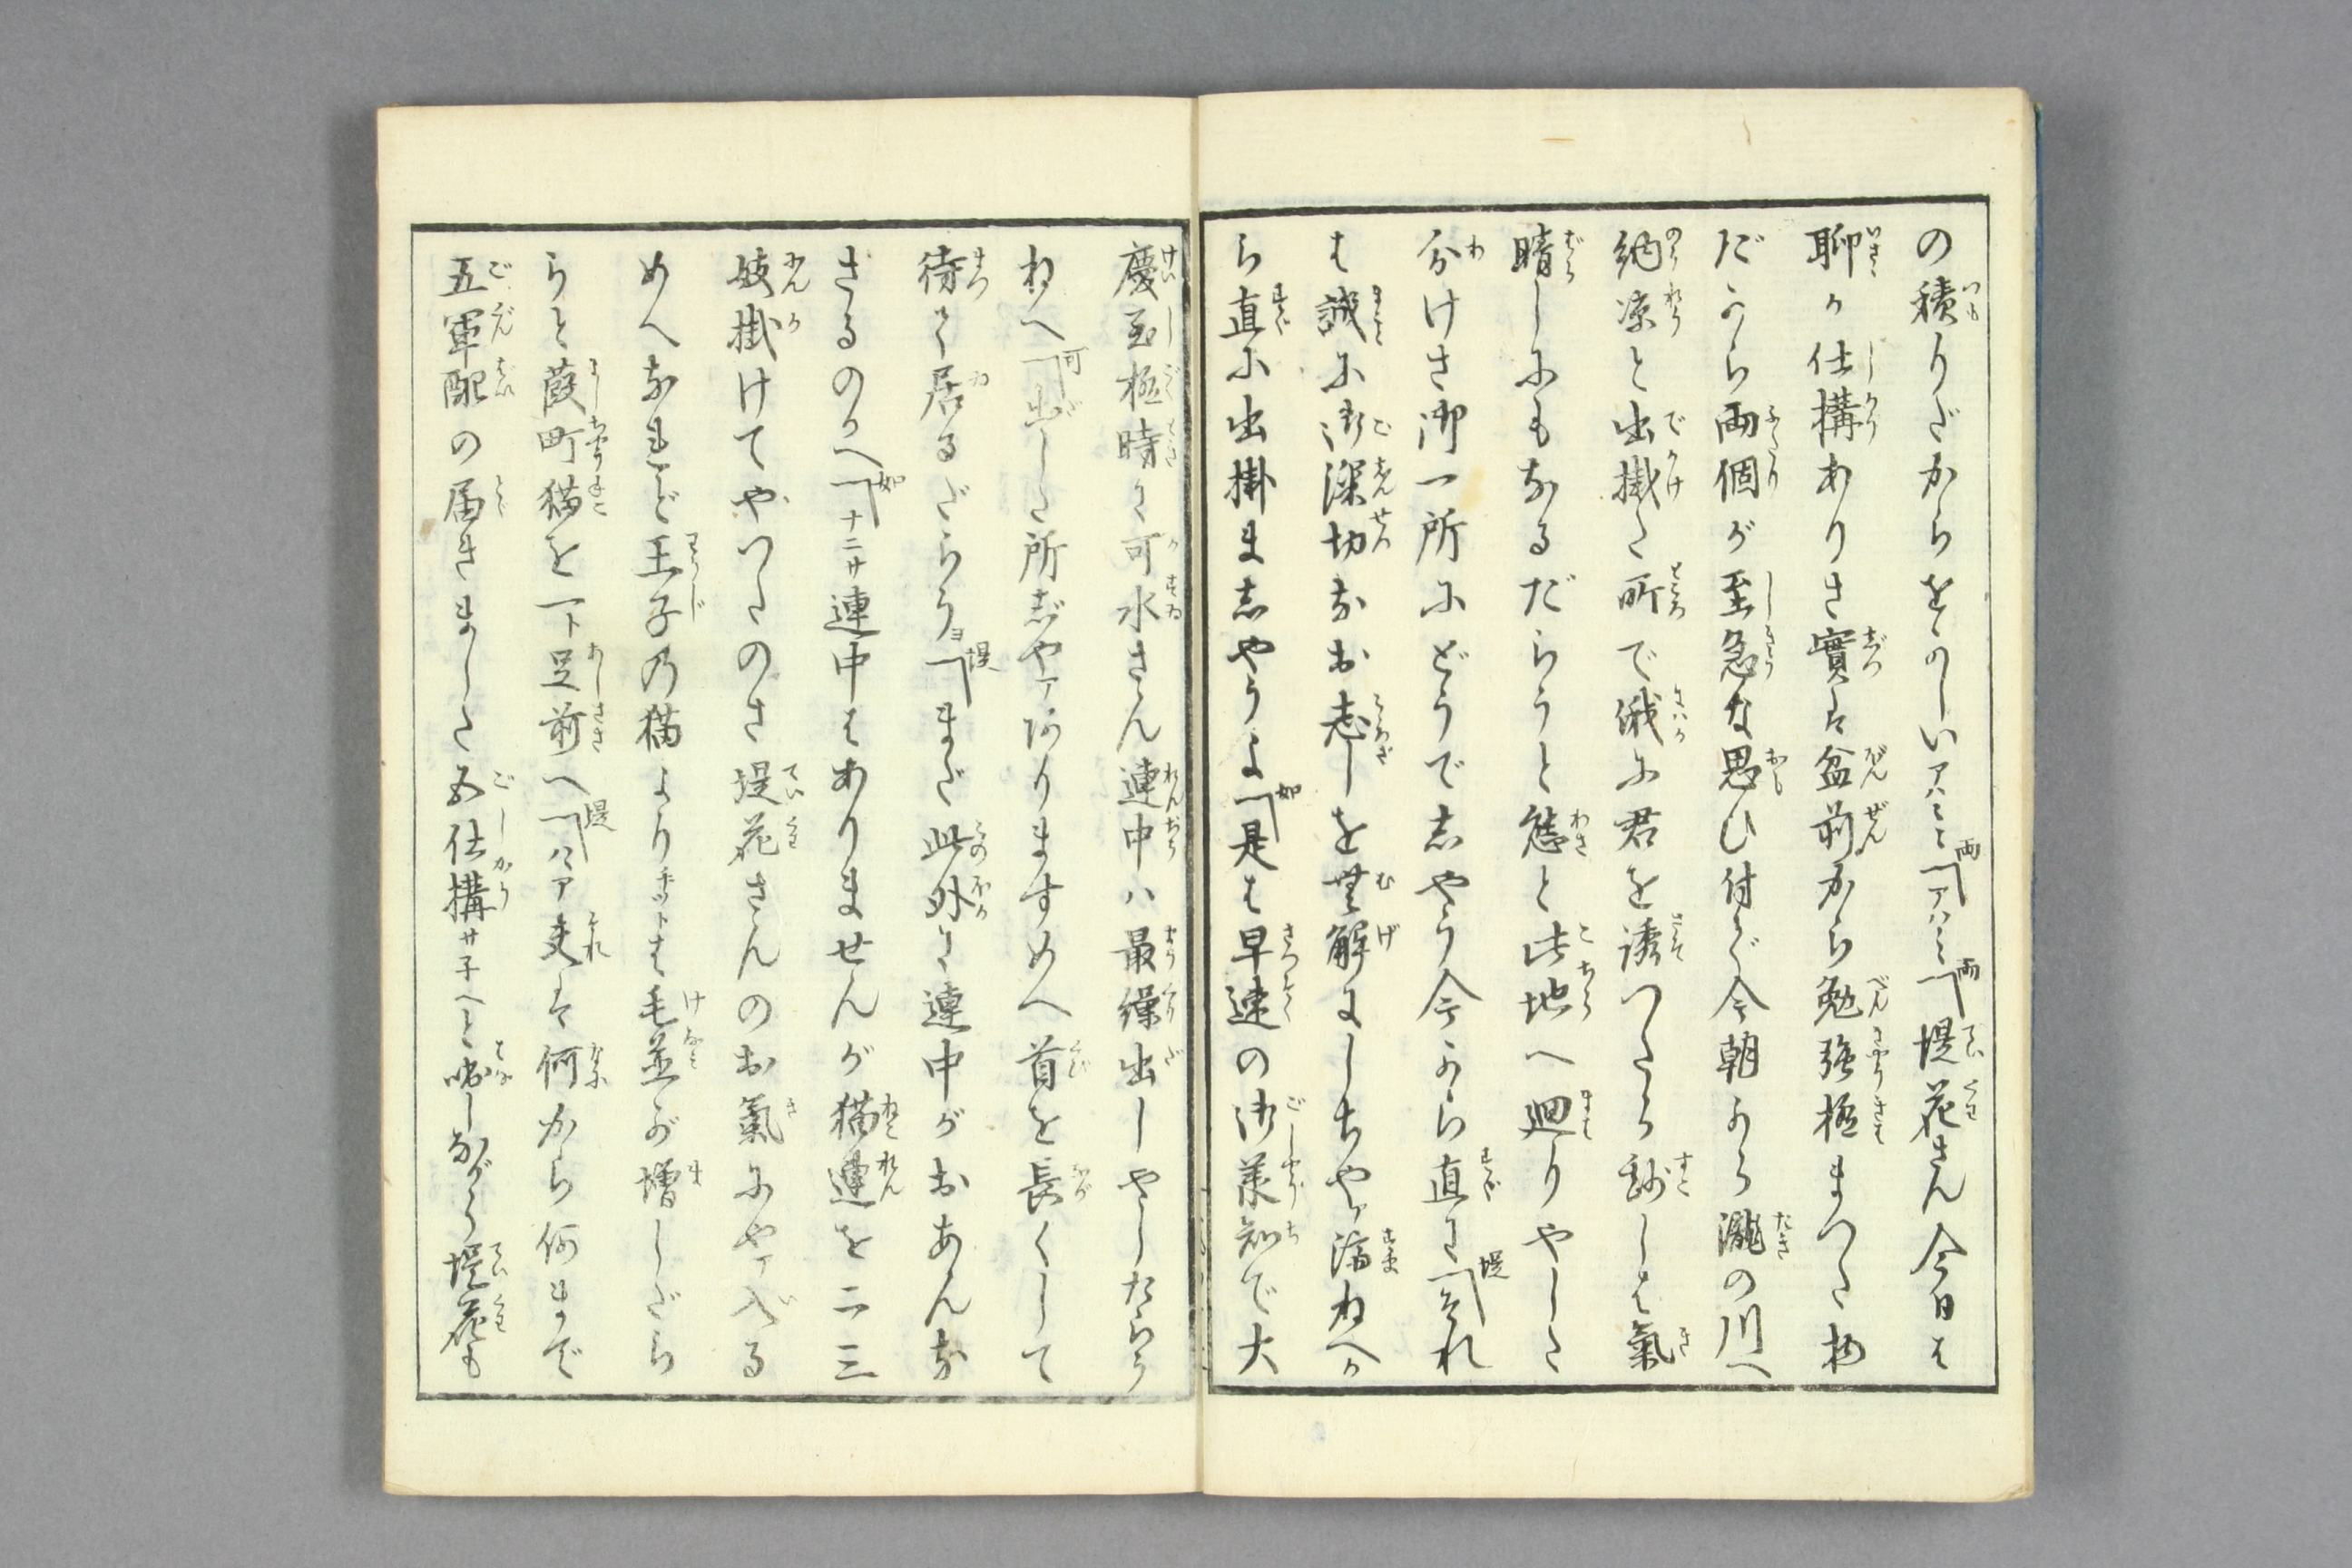 の積りだからをかしいアハヽヽ両「アハヽヽ両「堤花さん今日は
聊か仕構ありさ實は盆前から勉強極まつた物
だから両個が至急な思ひ付で今朝から瀧の川へ
納凉と出掛た所で俄に君を誘つたら訬しは氣
晴しにもなるだらうと態と此地へ廻りやした
分けさ御一所にどうで志やう今から直に堤「それ
は誠に御深切なお志しを無解にしちやア濟ねへか
ら直に出掛ま志やうよ如「是は早速の御羕知で大
慶至極時に可水さん連中ハ最繰出しやしたらう
ねへ可「出した所ぢやア阿りますめへ首を長くして
待て居るだらうヨ堤「まだ此外に連中がおあんな
さるのかへ如「ナニサ連中はありませんが猫連を二三
妓掛けてやつたのさ堤花さんのお氣にやア入る
めへなれど王子乃猫よりチツトは毛並が増しだら
らと葭町猫を一ト足前へ堤「ハヽア夫は何から何まで
五軍配の届きました五仕構サ子ヘと咄しながら堤花も